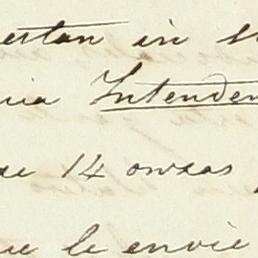 estan in s
ria Intenden
se 14 onzas
ue le envie